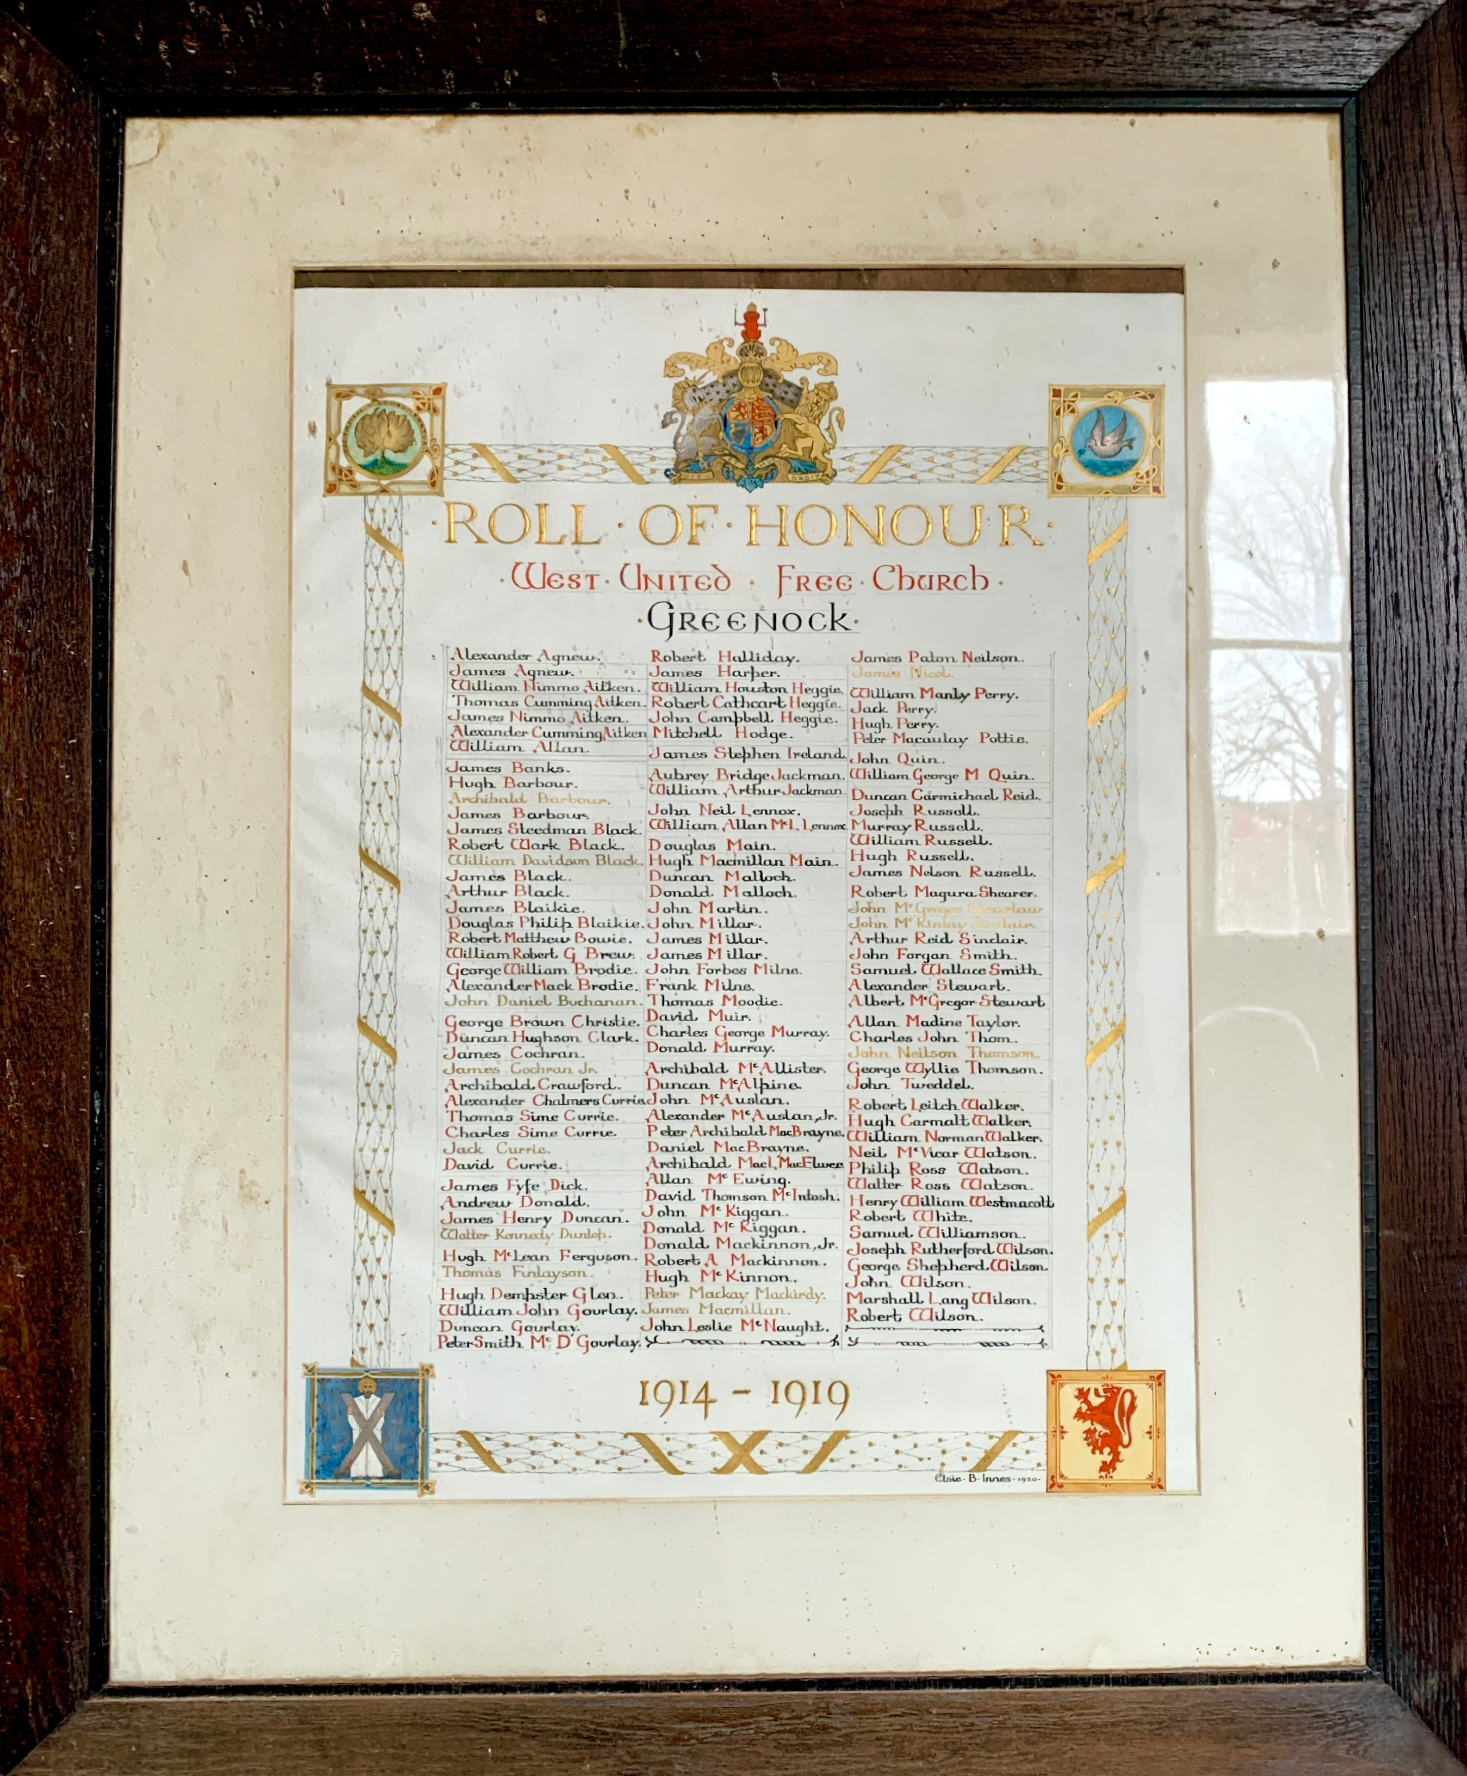 ·ROLL·OF·HONOUR·
·West·United·Free·Church·
·Greenock·
Alexander Agnew.
James Agnew.
William Nimmo Aitken.
Thomas Cumming Aitken.
James Nimmo Aitken.
Alexander Cumming Aitken
William Allan.
James Banks.
Hugh Barbour.
Archibald Barbour.
James Barbour.
James Steedman Black.
Robert Wark Black.
William Davidson Black.
James Black.
Arthur Black.
James Blaikie.
Douglas Philip Blaikie.
Robert Matthew Bowie.
William Robert G Brew.
George William Brodie.
Alexander Mack Brodie.
John Daniel Buchanan.
George Brown Christie.
Duncan Hughson Clark.
James Cochran.
James Cochran Jr.
Archibald Crawford.
Alexander Chalmers Currie.
Thomas Sime Currie.
Charles Sime Currie.
Jack Currie.
David Currie.
James Fyfe Dick.
Andrew Donald.
James Henry Duncan.
Walter Kennedy Dunlop.
Hugh McLean Ferguson.
Thomas Finlayson.
Hugh Dempster Glen.
William John Gourlay.
Duncan Gourlay.
Peter Smith Mc D Gourlay.
Robert Halliday.
James Harper.
William Houston Heggie.
Robert Cathcart Heggie.
John Campbell Heggie.
Mitchell Hodge.
James Stephen Ireland.
Aubrey Bridge Jackman.
William Arthur Jackman.
John Neil Lennox.
William Allan McL Lennox
Douglas Main.
Hugh Macmillan Main.
Duncan Malloch.
Donald Malloch.
John Martin.
John Millar.
James Millar.
James Millar.
John Forbes Milne.
Frank Milne.
Thomas Moodie.
David Muir.
Charles George Murray.
Donald Murray.
Archibald McAllister.
Duncan McAlpine.
John McAuslan.
Alexander McAuslan, Jr.
Peter Archibald MacBrayne.
Daniel MacBrayne.
Archibald MacL. MacElwee
Allan McEwing.
David Thomson McIntosh.
John McKiggan.
Donald McKiggan.
Donald Mackinnon, Jr.
Robert A Mackinnon.
Hugh McKinnon.
Peter Mackay Mackirdy.
James Macmillan.
John Leslie McNaught.
James Paton Neilson.
James Nicol.
William Manly Perry.
Jack Perry.
Hugh Perry.
Peter Macaulay Pottie.
John Quin.
William George M Quin.
Duncan Carmichael Reid.
Joseph Russell.
Murray Russell.
William Russell.
Hugh Russell.
James Nelson Russell.
Robert Magura Shearer.
John McGregor Shearlaw
John McKinlay Sinclair.
Arthur Reid Sinclair.
John Forgan Smith.
Samuel Wallace Smith
Alexander Stewart.
Albert McGregor Stewart
Allan Madine Taylor.
Charles John Thom.
John Neilson Thomson.
George Wyllie Thomson.
John Tweddel.
Robert Leitch Walker.
Hugh Carmalt Walker.
William Norman Walker.
Neil McVicar Watson.
Philip Ross Watson.
Walter Ross Watson.
Henry William Westmacott
Robert White.
Samuel Williamson.
Joseph Rutherford Wilson.
George Shepherd Wilson.
John Wilson.
Marshall Lang Wilson.
Robert Wilson.
1914 – 1919
Elsie·B·Innes·1920·